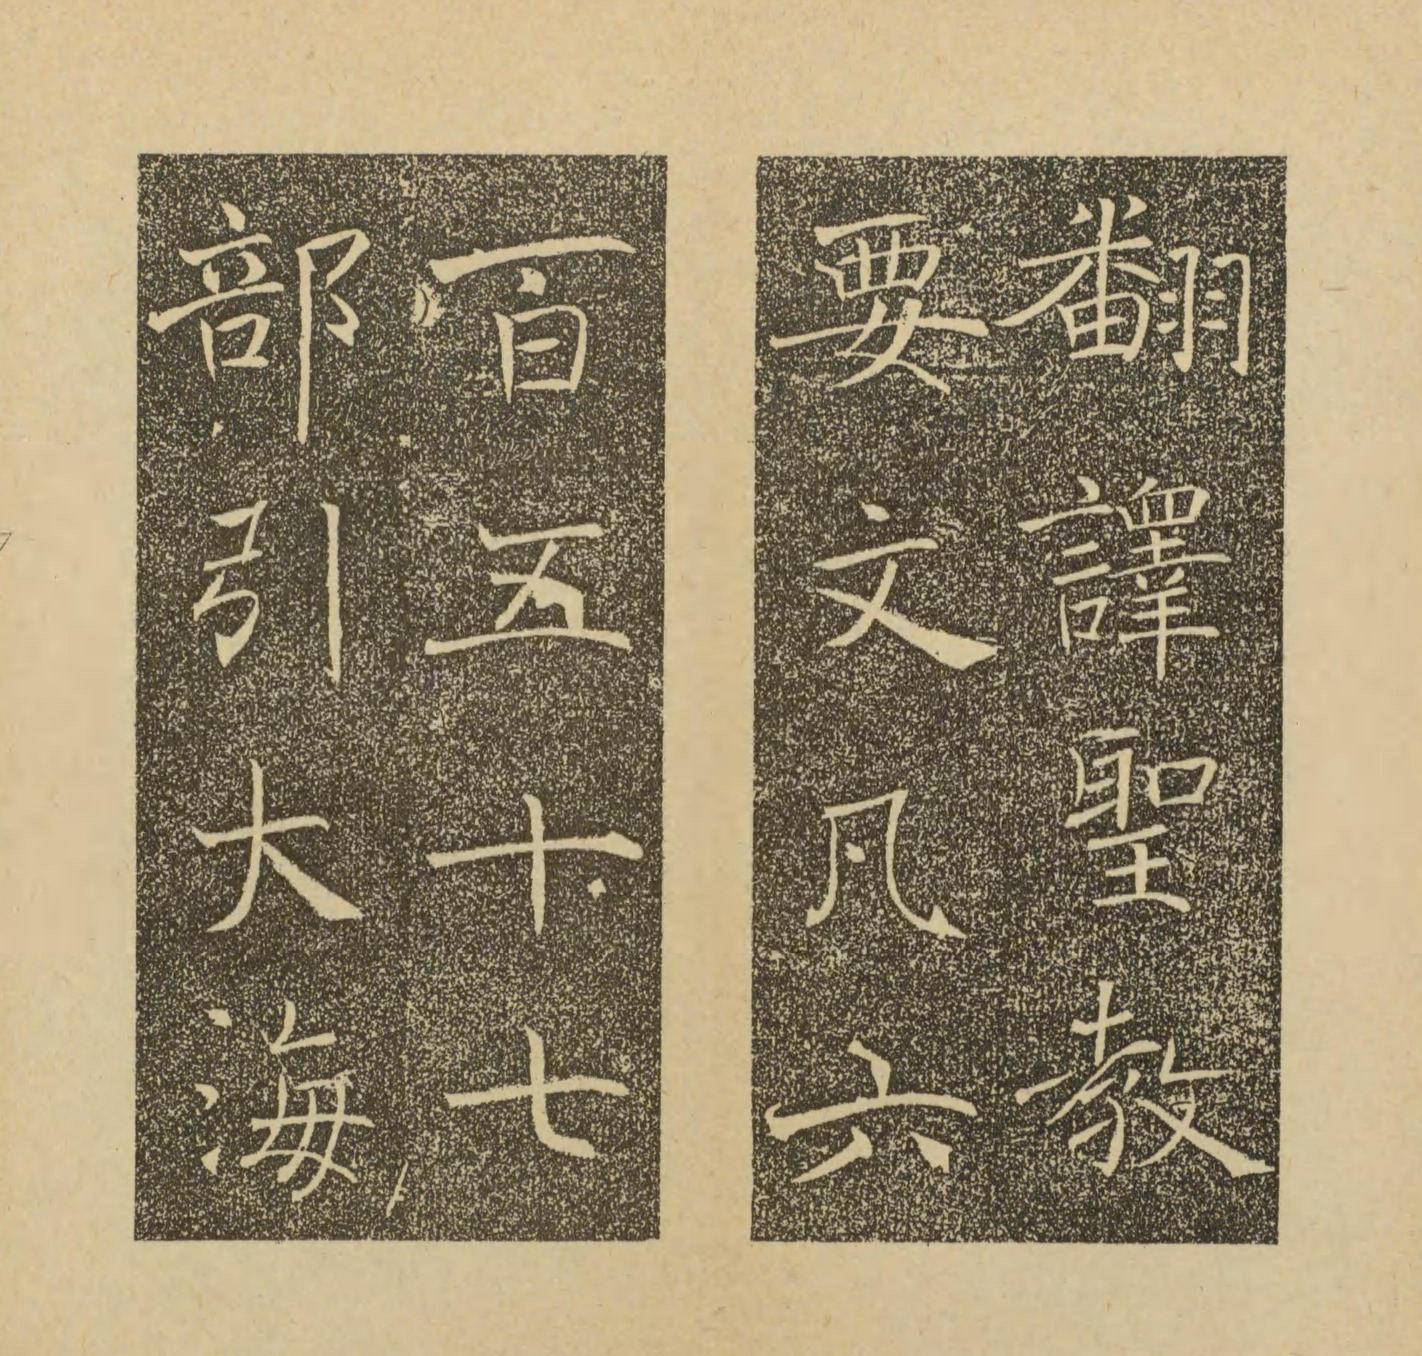 翻譯聖教
要文凡六
百五十七
部引大海